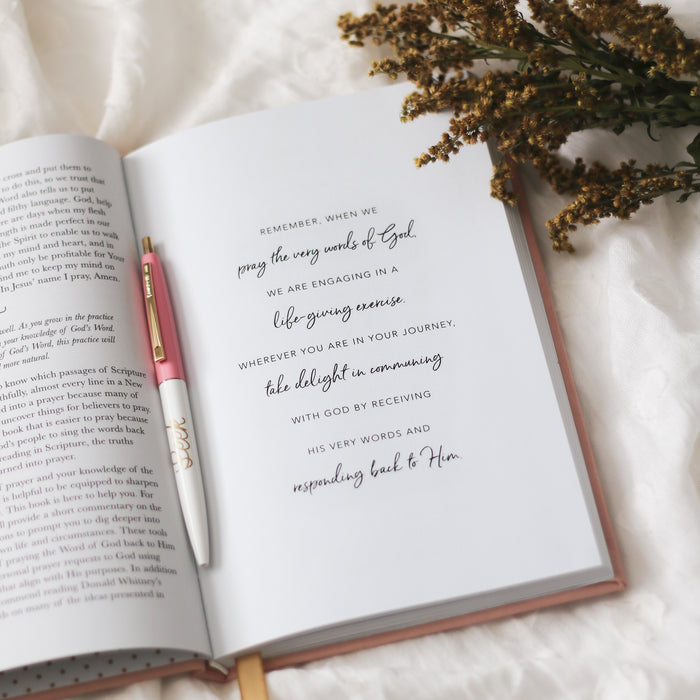 cross and put them to
to do this, so we trust that
Word also tells us to put
d filthy language. God, help
re are days when my flesh
ngth is made perfect in our
the Spirit to enable us to walk
my mind and heart, and in
uth only be profitable for Your
ind me to keep my mind on
In Jesus' name I pray, Amen.
well. As you grow in the practice
your knowledge of God's Word.
of God's Word, this practice will
more natural.
o know which passages of Scripture
thfully, almost every line in a New
ed into a prayer because many of
uncover things for believers to pray.
book that is easier to pray because
God's people to sing the words back
reading in Scripture, the truths
urned into prayer.
f prayer and your knowledge of the
is helpful to be equipped to sharpen
. This book is here to help you. For
ll provide a short commentary on the
ons to prompt you to dig deeper into
wn life and circumstances. These tools
f praying the Word of God back to Him
ersonal prayer requests to God using
that align with His purposes. In addition
commend reading Donald Whitney's
th on many of the ideas presented in
REMEMBER, WHEN WE
pray the very words of God,
WE ARE ENGAGING IN A
life-giving exercise.
WHEREVER YOU ARE IN YOUR JOURNEY,
take delight in communing
WITH GOD BY RECEIVING
HIS VERY WORDS AND
responding back to Him.